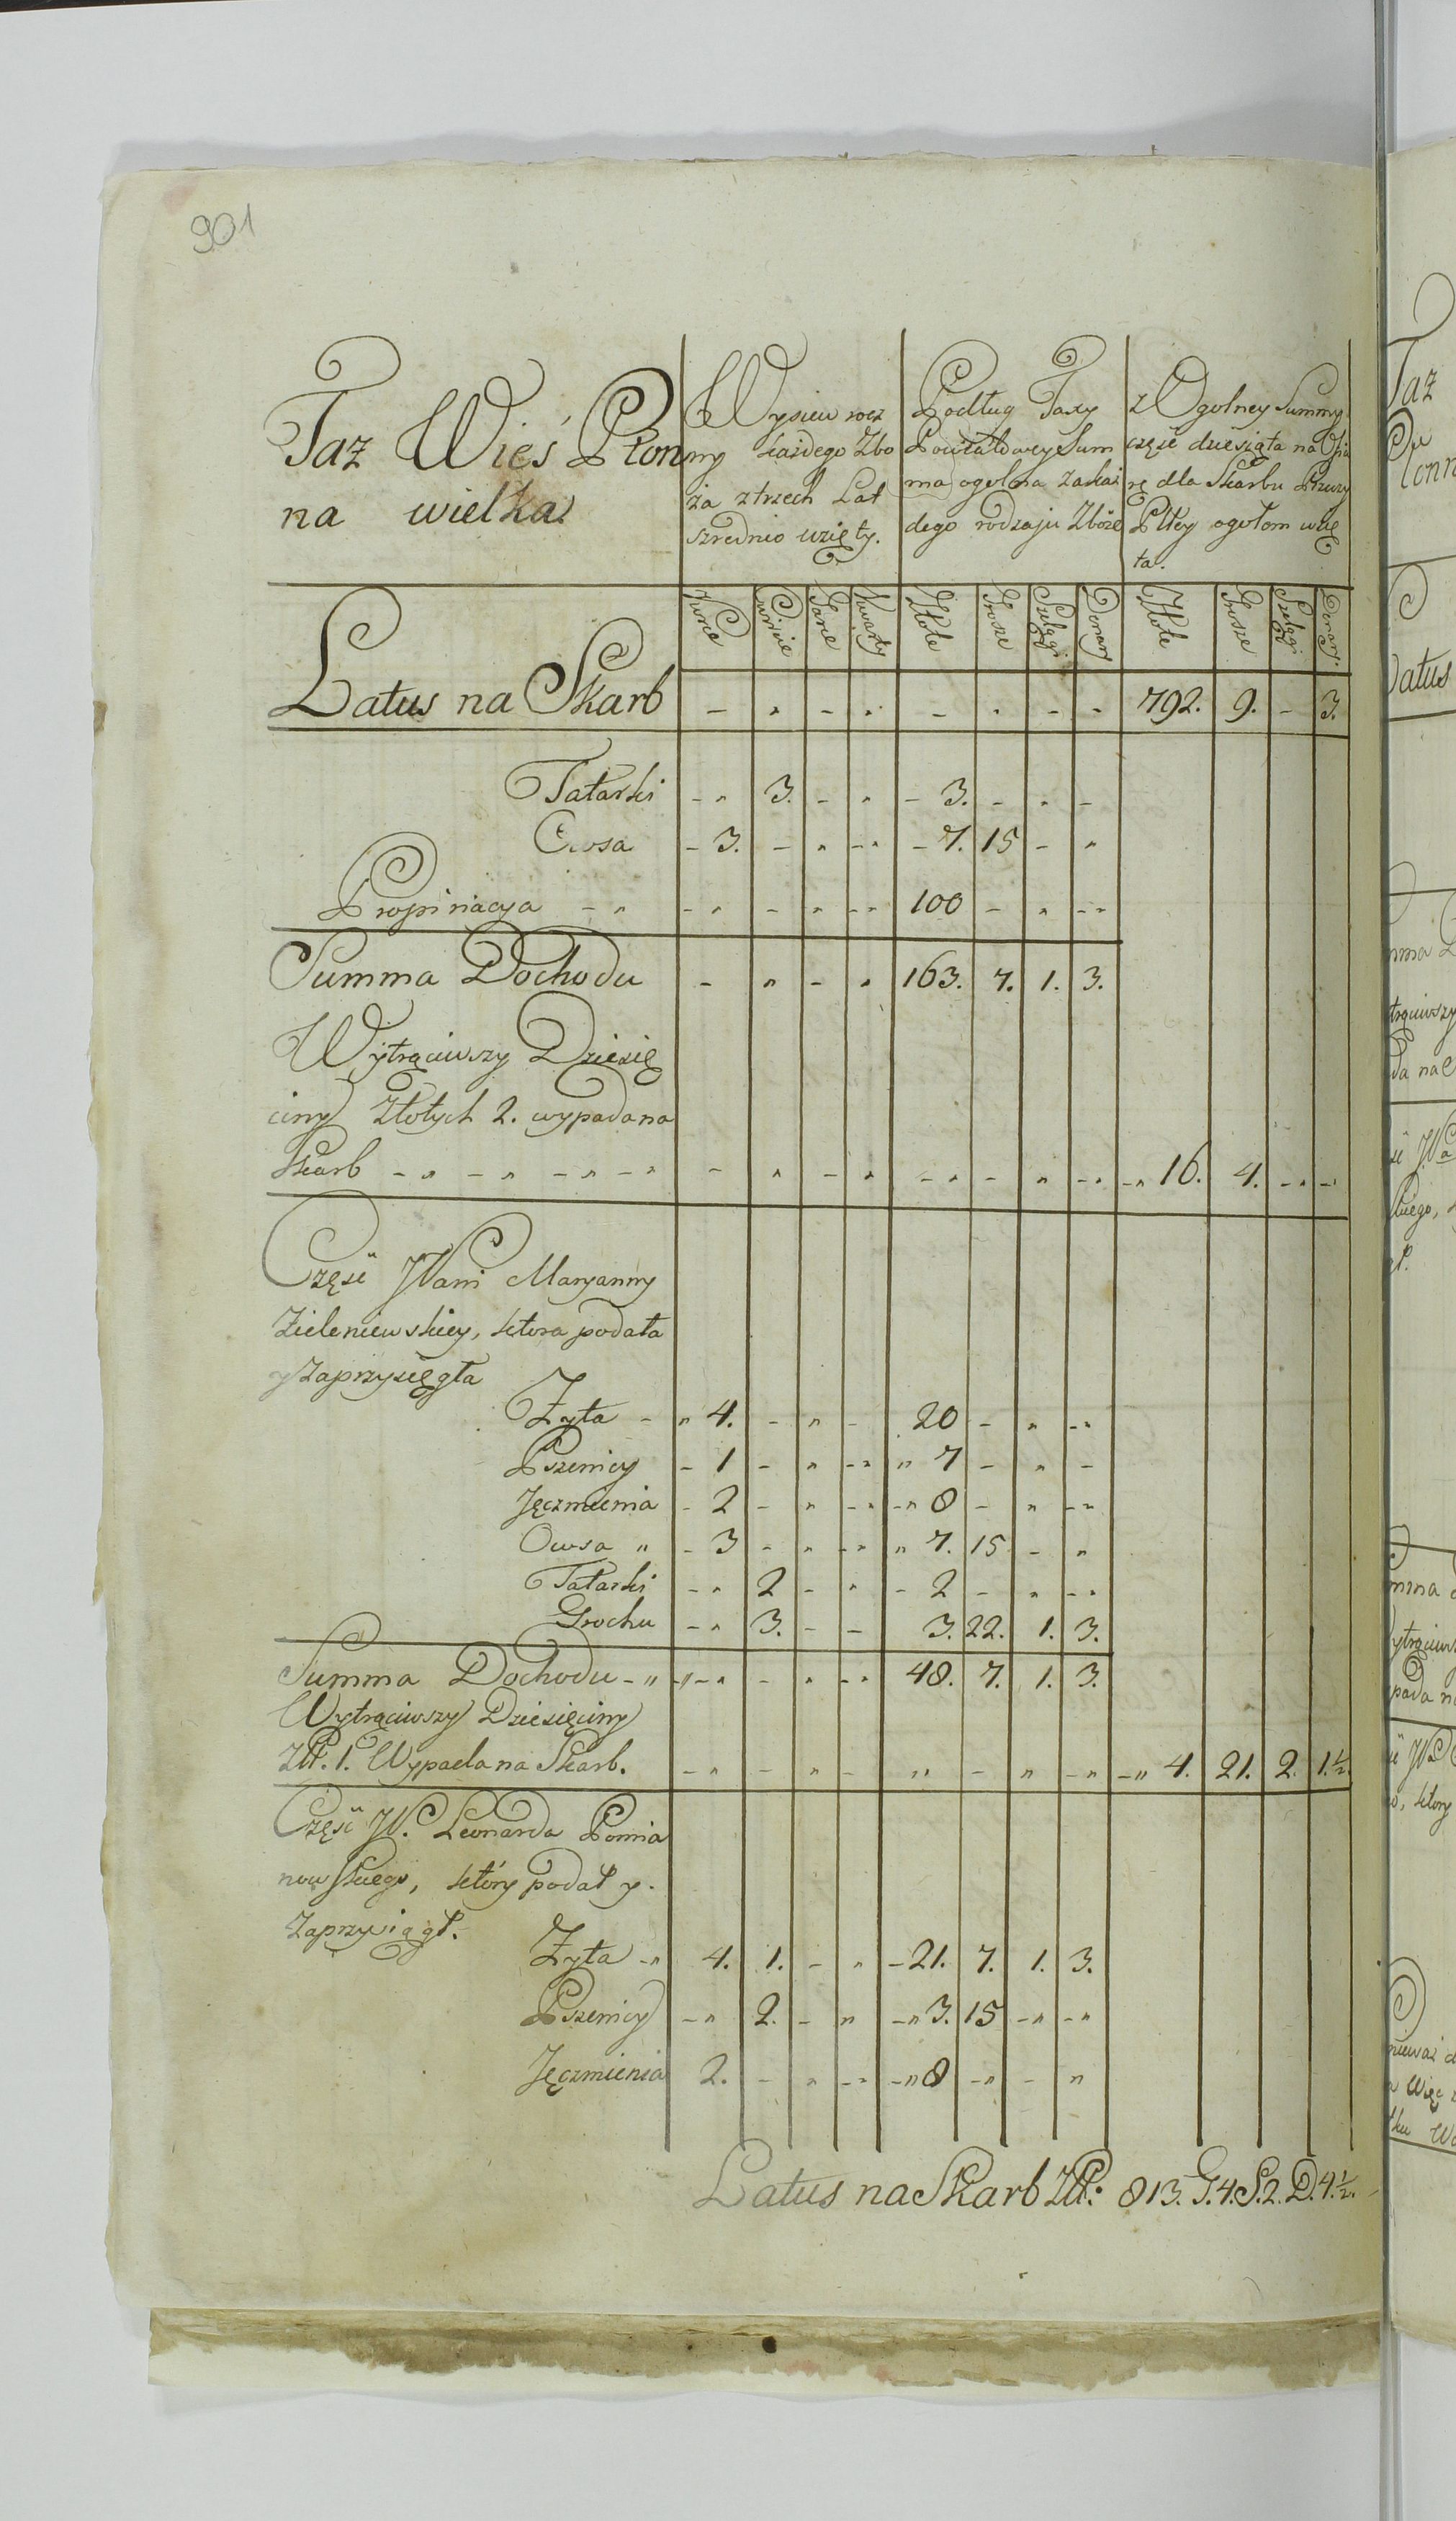 901
Taż Wieś Płon
na wielka
Wysiew rocz
ny każdego Zbo
ża z trzech Lat
szrednio wzięty.
Podług Taxy
Powiatowey Sum
ma ogolna za każ
dego rodzaju Zboże
z Ogolney Summy
częsć dziesiąta na Ofia
rę dla Skarbu Rzeczy
Pltey ogołem wzię
ta.
Korce Cwierci Garce Kwarty Złote Grosze Szelągi Denary Złote Grosze Szelągi Denary.
Latus na Skarb - " - " - " - " 792. 9. - 3.
Tatarki - " 3. - " - 3. - " -
Owsa - 3. - " - " - 7. 15 - "
Propinacya - " - " - " - " 100 - " - "
Summa Dochodu - " - " 163. 7. 1. 3.
Wytrąciwszy Dziesię
ciny Złotych 2. wypada na
Skarb - " - " - " - " - " - " - " - " - " - " 16. 4. - " -
Częsć JPani Maryanny
Zieleniewskiey, ktora podała
y zaprzysięgła
Zyta - " 4. - " - 20 - " - "
Pszenicy - 1 - " - " " 7 - " -
Jęczmienia - 2 - " - " - " 8 - " - "
Owsa " - 3 - " - " " 7. 15 - "
Tatarki - " 2 - " - 2 - " - "
Grochu - " 3. - - 3. 22. 1. 3.
Summa Dochodu - " " - " - " - " 48. 7. 1. 3.
Wytrąciwszy Dziesięciny
Złt. 1. Wypada na Skarb. - " - " - " - " - " - " 4. 21. 2. 1.½.
Częsć JP. Leonarda Pomia
nowskiego, który podał y
zaprzysiągł.
Zyta - " 4. 1. - " - 21. 7. 1. 3.
Pszenicy - " 2. - " - " 3. 15 - " - "
Jęczmienia 2. - " - " - " 8 - " - "
Latus na Skarb Złt: 813. G. 4. S. 2. D. 4.½.